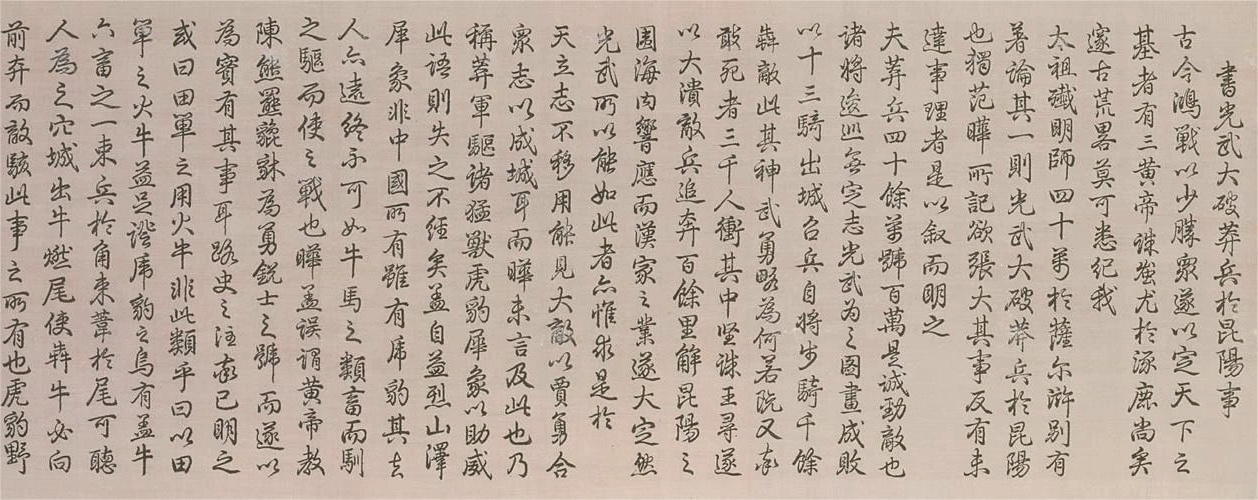 書光武大破莽兵於昆陽事
古今鴻戰以少勝眾遂以定天下之
基者有三黃帝誅蚩尤於涿鹿尚矣
邃古荒畧莫可悉紀我
太祖殲明師四十萬於薩尔滸别有
著論其一則光武大破莽兵於昆陽
也獨范曄所記欲張大其事反有未
達事理者是以叙而明之
夫莽兵四十餘萬號百萬是誠勁敵也
諸將逡巡無定志光武為之圖畫成敗
以十三騎出城召兵自將步騎千餘
犇敵此其神武勇略為何若既又率
敢死者三千人衝其中堅誅王尋遂
以大潰敵兵追奔百餘里解昆陽之
圍海内響應而漢家之業遂大定然
光武所以能如此者亦惟求是於
天立志不移用能見大敵以賈勇合
眾志以成城耳而曄未言及此也乃
稱莽軍驅诸猛獸虎豹犀象以助威
此語則失之不經矣盖自益烈山澤
犀象非中國所有雖有虎豹其去
人亦遠終不可如牛馬之類畜而馴
之驅而使之戰也曄盖误謂黄帝教
陳熊羆貔貅為勇銳士之號而遂以
為實有其事耳路史之注固已明之
或曰田單之用火牛非此類乎曰以田
單之火牛益足證虎豹之烏有盖牛
六畜之一束兵於角束葦於尾可聽
人為之穴城出牛燃尾使犇牛必向
前奔而敵駭此事之所有也虎豹野